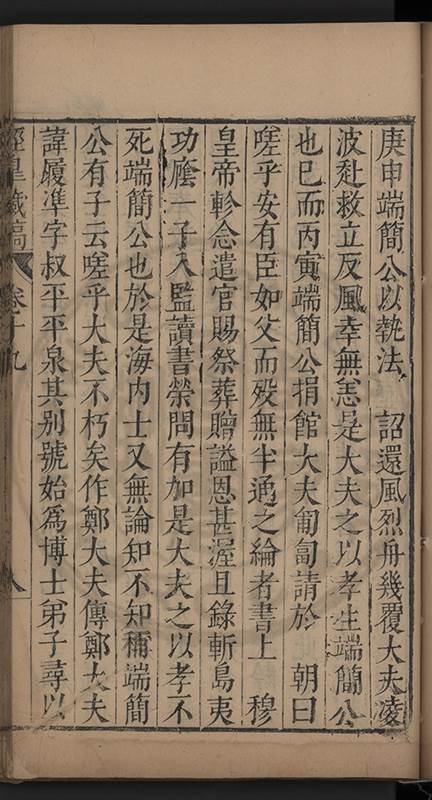 庚申端簡公以執法　詔還風烈舟幾覆大夫凌
波赴救立反風幸無恙是大夫之以孝生端簡公
也已而丙寅端簡公捐館大夫匍匐請於　朝曰
嗟乎安有臣如父而歿無半通之綸者書上　穆
皇帝軫念遣官賜祭葬贈謚恩甚渥且錄斬島夷
功廕一子入監讀書榮閥有加是大夫之以孝不
死端簡公也於是海內士又無論知不知稱端簡
公有子云嗟乎大夫不朽矣作鄭大夫傳鄭大夫
諱履準字叔平平泉其別號始爲博士弟子尋以
卷十九
八